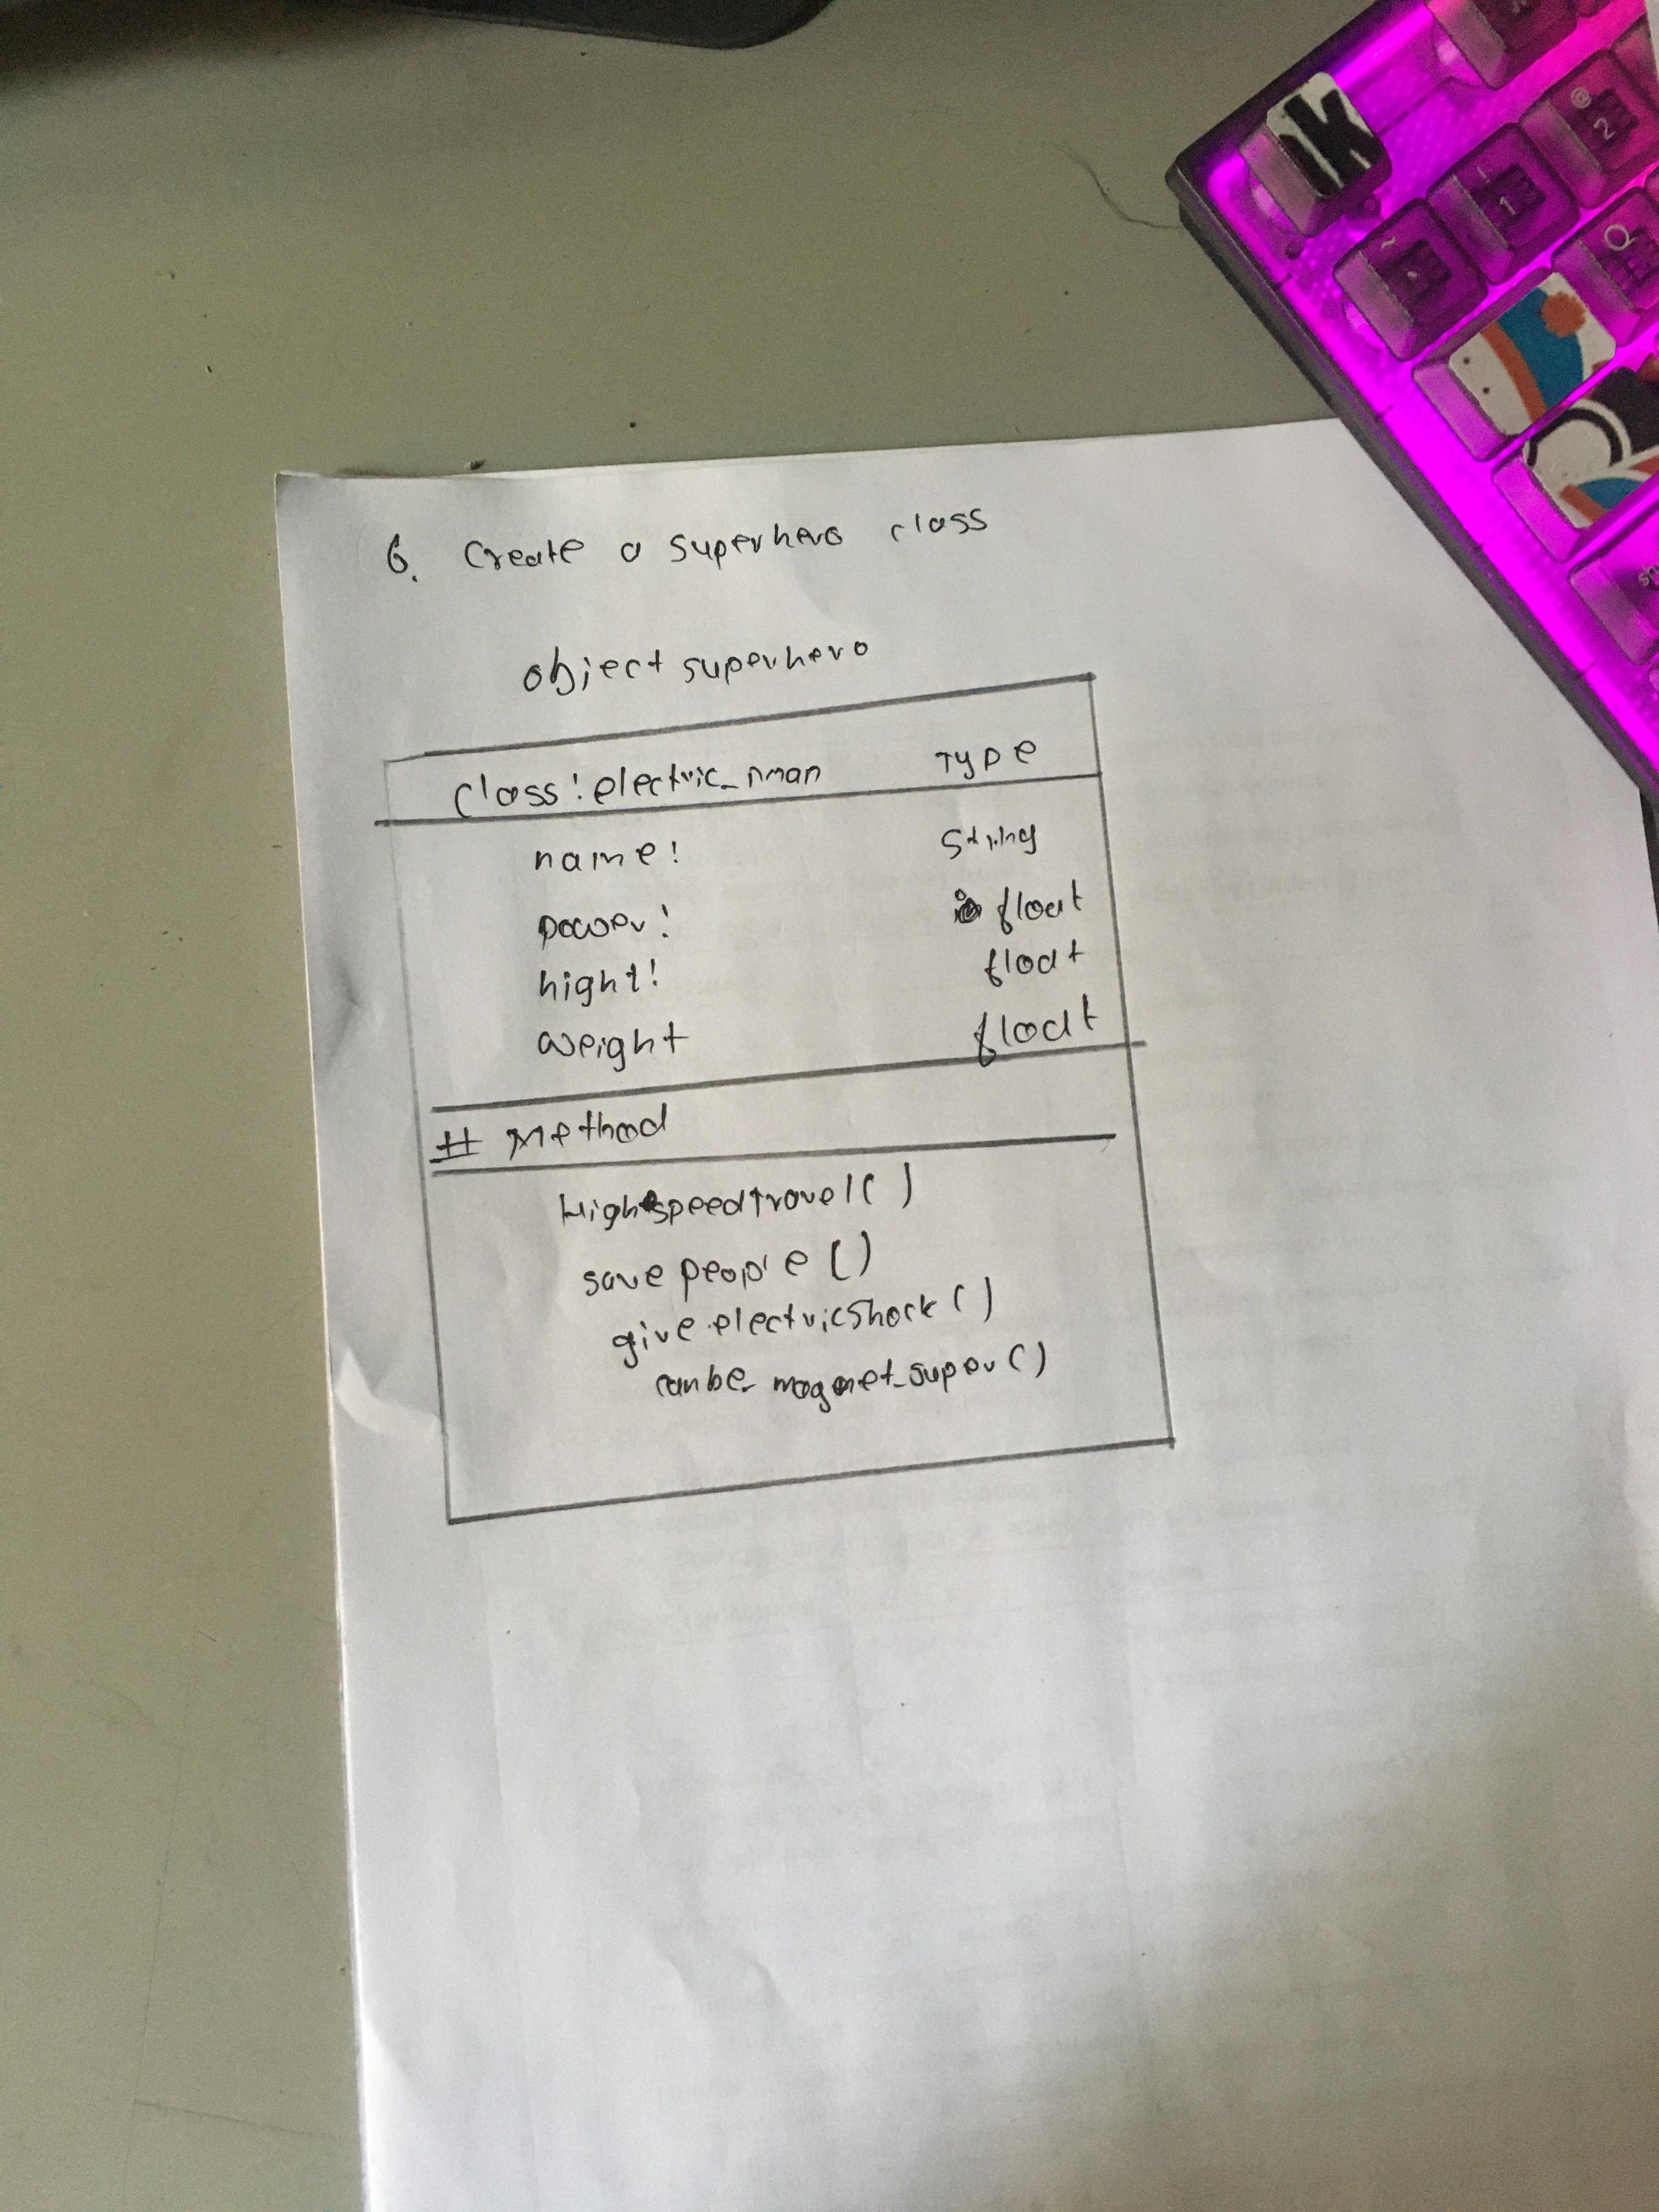 6. Create a superhero class
object superhero
class: electric_man Type
name: String
power: float
hight: float
weight float
# Method
Highspeedtravel()
savepeople()
give electricshock()
canbe_magnet_super()
~ ` ! 1 @ 2
Q